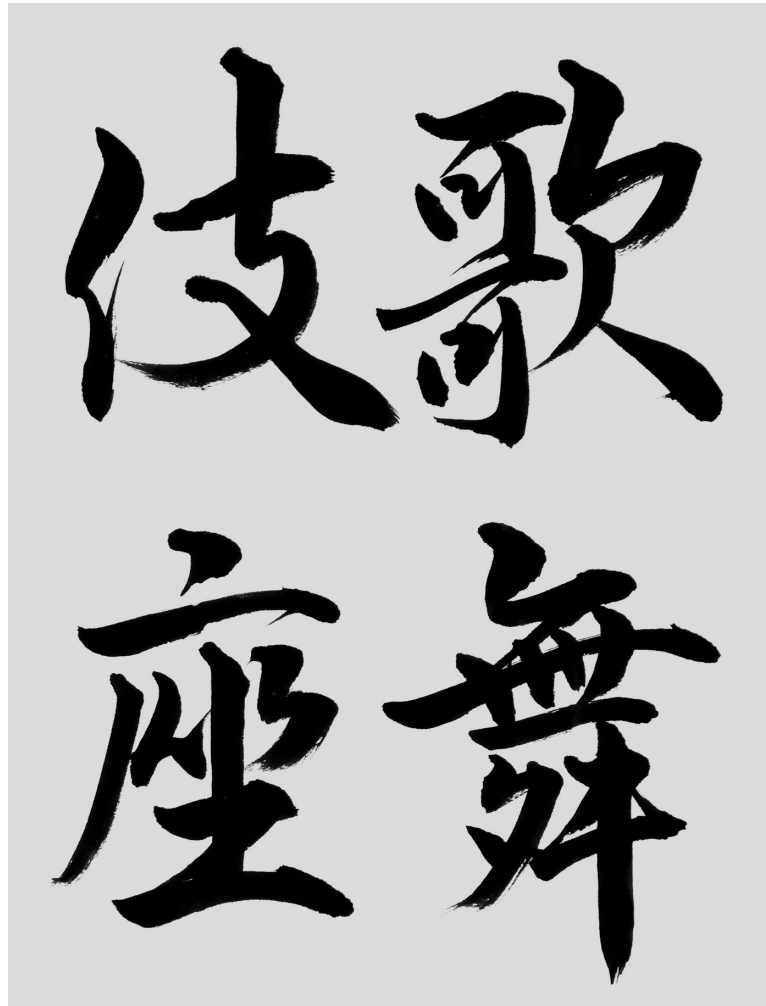 歌舞
伎座